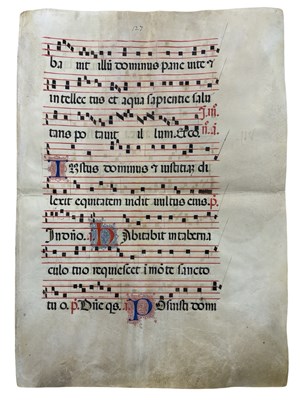 ba uit illū dominus pane vite &
intellec tus et aqua sapientie salu
tans po tauit il lum. Et co.
Iustus dominus & iustitias di
lexit equitatem uidit vultus eius. p.
In dño. a. Habitabit in taberna
culo tuo requiescet i mōte sancto
tu o. p. Dñe qs. a. Posuisti domi